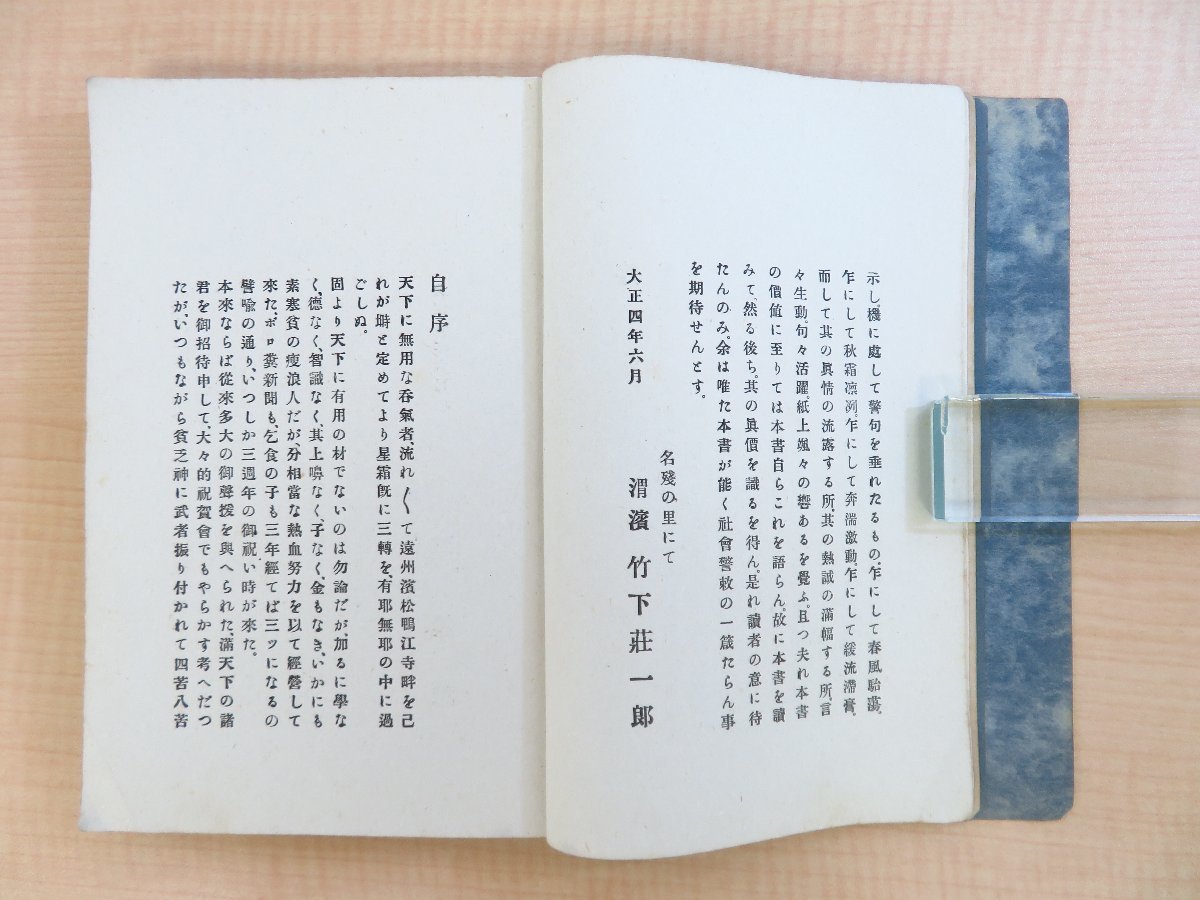 示し。機に處して警句を垂れたるもの。乍にして春風駘蕩。
乍にして秋霜凛冽。乍にして奔湍激動。乍にして緩流滯膏。
而して其の眞情の流露する所、其の熱誠の滿幅する所、言
々生動。句々活躍。紙上颯々の響あるを覺ふ。且つ夫れ本書
の價値に至りては本書自らこれを語らん。故に本書を讀
みて、然る後ち。其の眞價を識るを得ん。是れ讀者の意に待
たんのみ。余は唯た本書が能く社會警敎の一箴たらん事
を期待せんとす。
大正四年六月
名殘の里にて
渭濱竹下莊一郎
自序
天下に無用な呑氣者、流れ〱て遠州濱松鴨江寺畔を己
れが塒と定めてより星霜旣に三轉を、有耶無耶の中に過
ごしぬ。
固より天下に有用の材でないのは勿論だが、加るに學な
く、德なく、智識なく、其上嚊なく、子なく、金もなき、いかにも
素寒貧の瘦浪人だが、分相當な熱血努力を以て經營して
來た、ボロ糞新聞も、乞食の子も三年經てば三ッになるの
譬喩の通り、いつしか三週年の御祝い時が來た。
本來ならば從來多大の御聲援を與へられた、滿天下の諸
君を御招待申して、大々的祝賀會でもやらかす考へだつ
たが、いつもながら貧乏神に武者振り付かれて四苦八苦